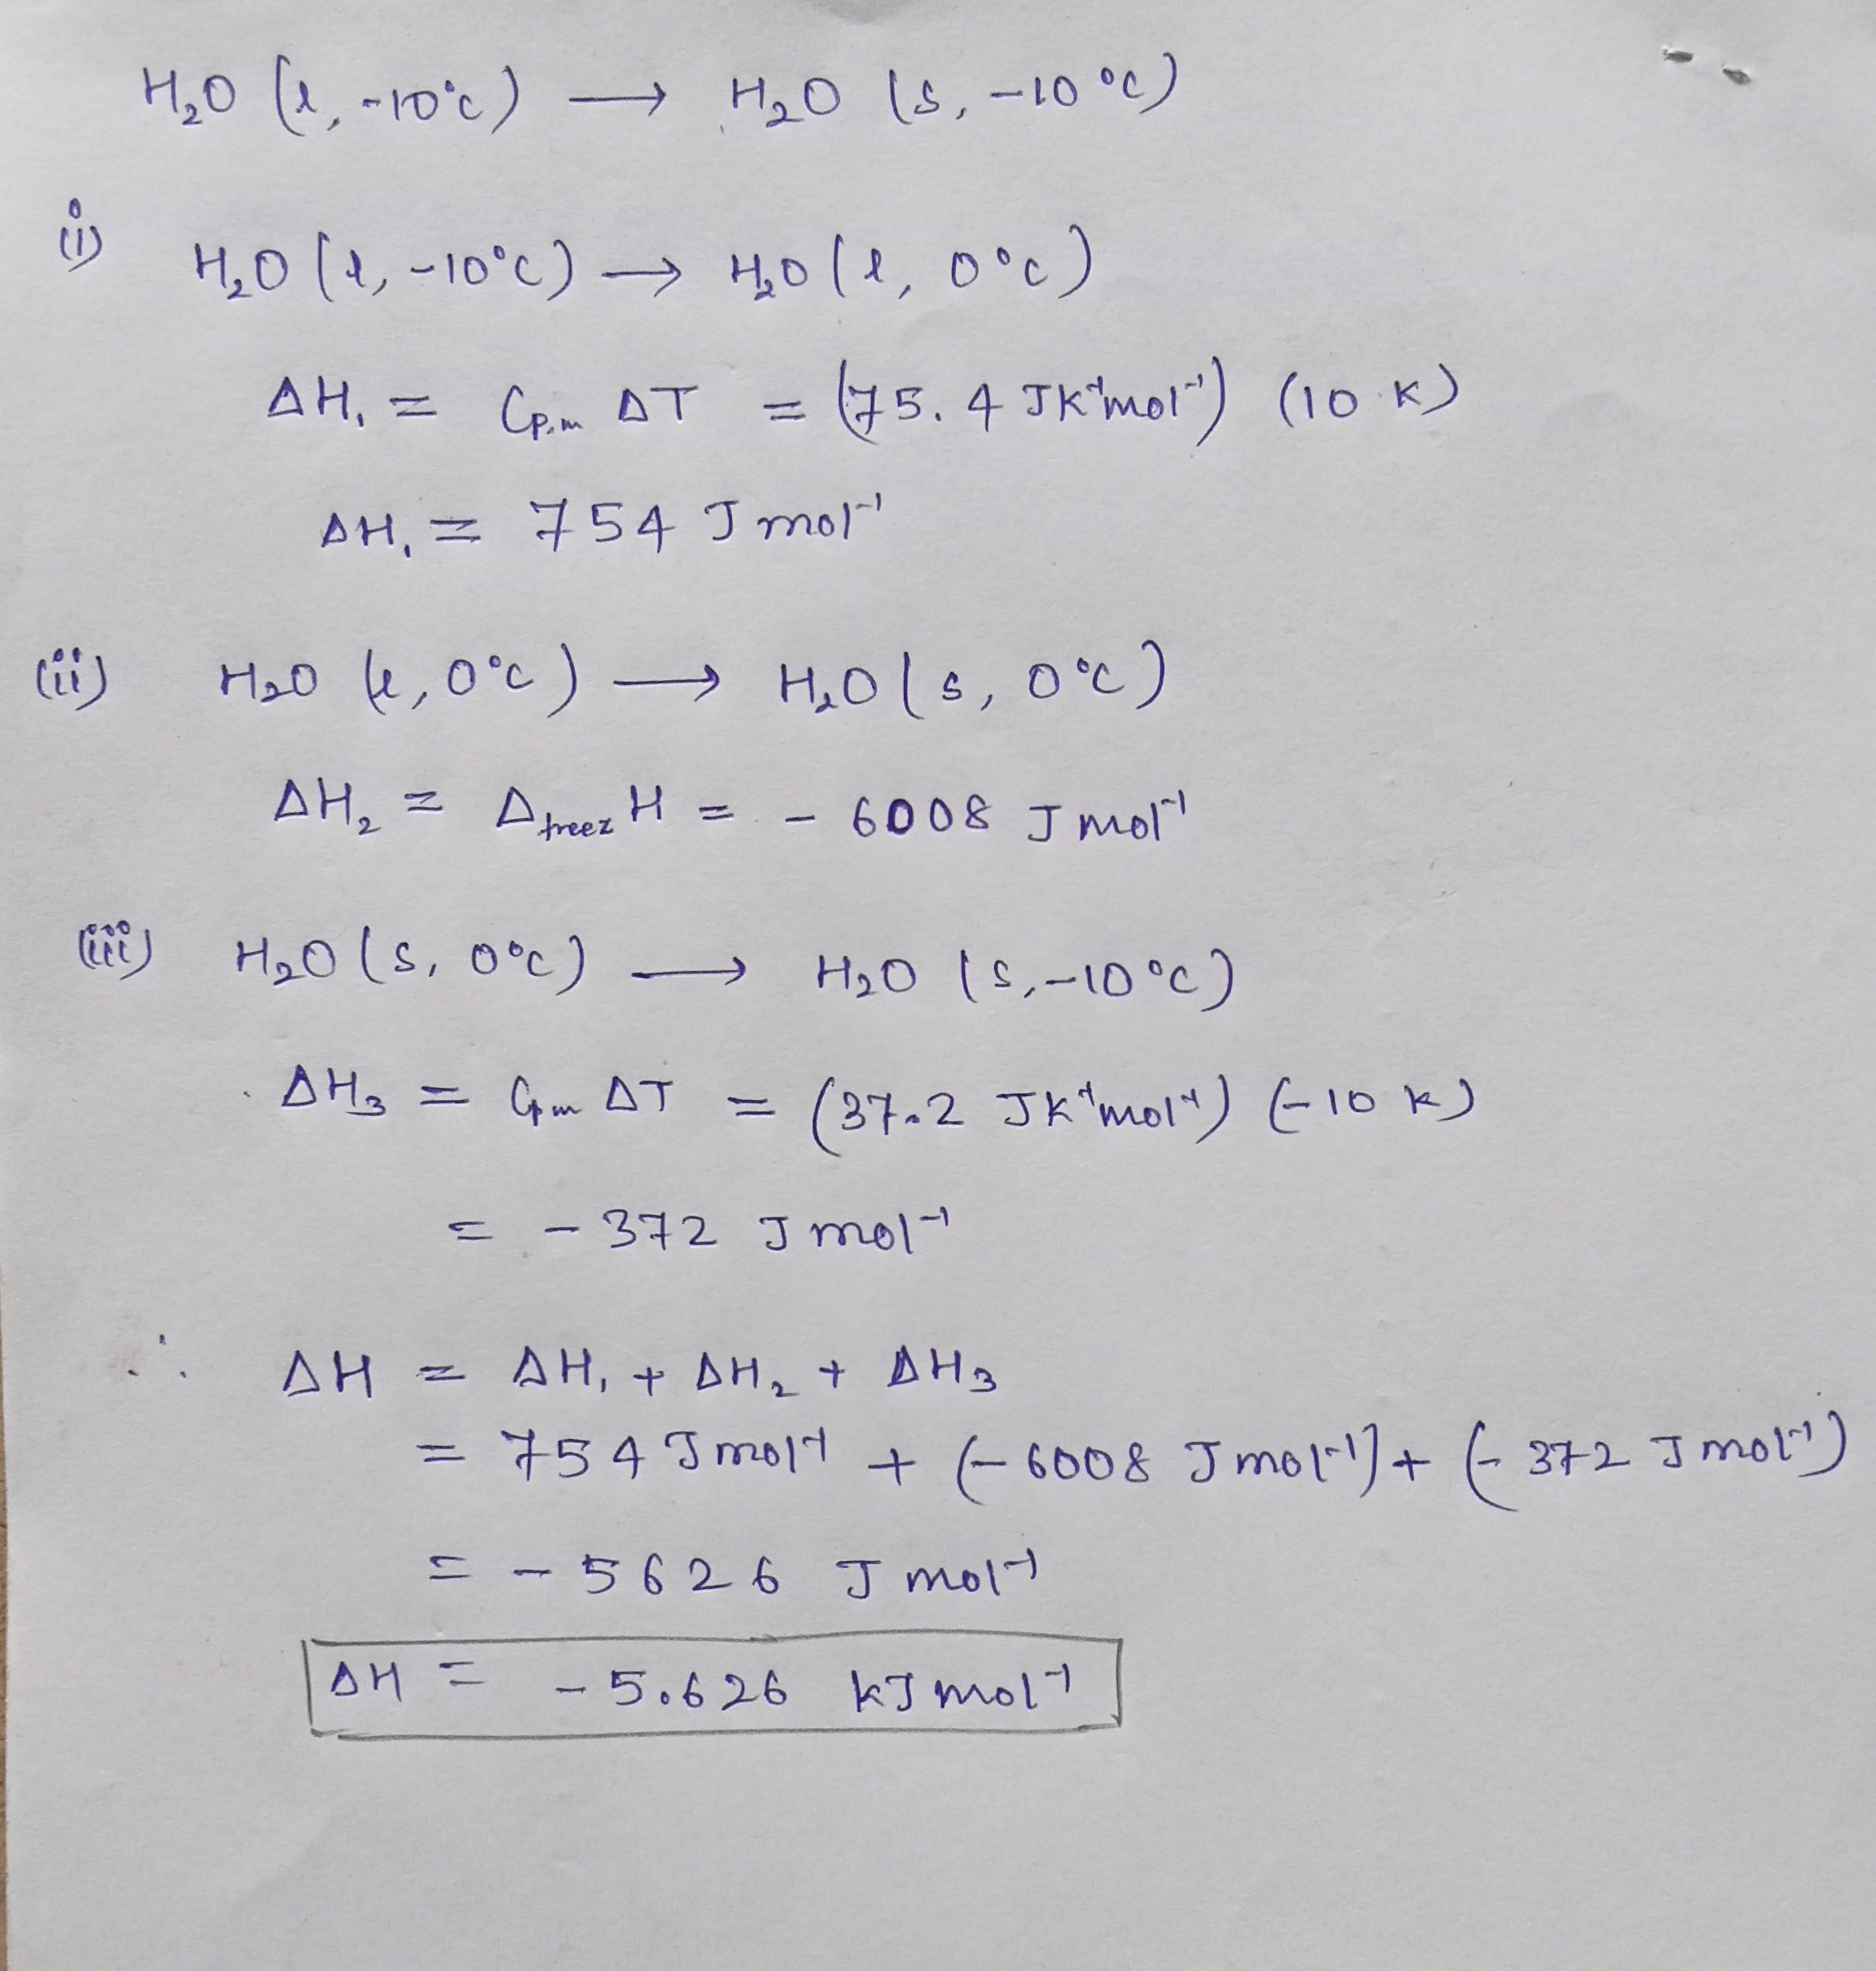 H₂O (l, -10°C) → H₂O (s, -10°C)
(i) H₂O (l, -10°C) → H₂O (l, 0°C)
ΔH₁ = Cp,m ΔT = (75.4 JK⁻¹mol⁻¹) (10 K)
ΔH₁ = 754 J mol⁻¹
(ii) H₂O (l, 0°C) → H₂O (s, 0°C)
ΔH₂ = Δfreez H = - 6008 J mol⁻¹
(iii) H₂O (s, 0°C) → H₂O (s, -10°C)
ΔH₃ = Cp,m ΔT = (37.2 JK⁻¹mol⁻¹) (-10 K)
= - 372 J mol⁻¹
∴ ΔH = ΔH₁ + ΔH₂ + ΔH₃
= 754 J mol⁻¹ + (- 6008 J mol⁻¹) + (- 372 J mol⁻¹)
= - 5626 J mol⁻¹
ΔH = - 5.626 kJ mol⁻¹